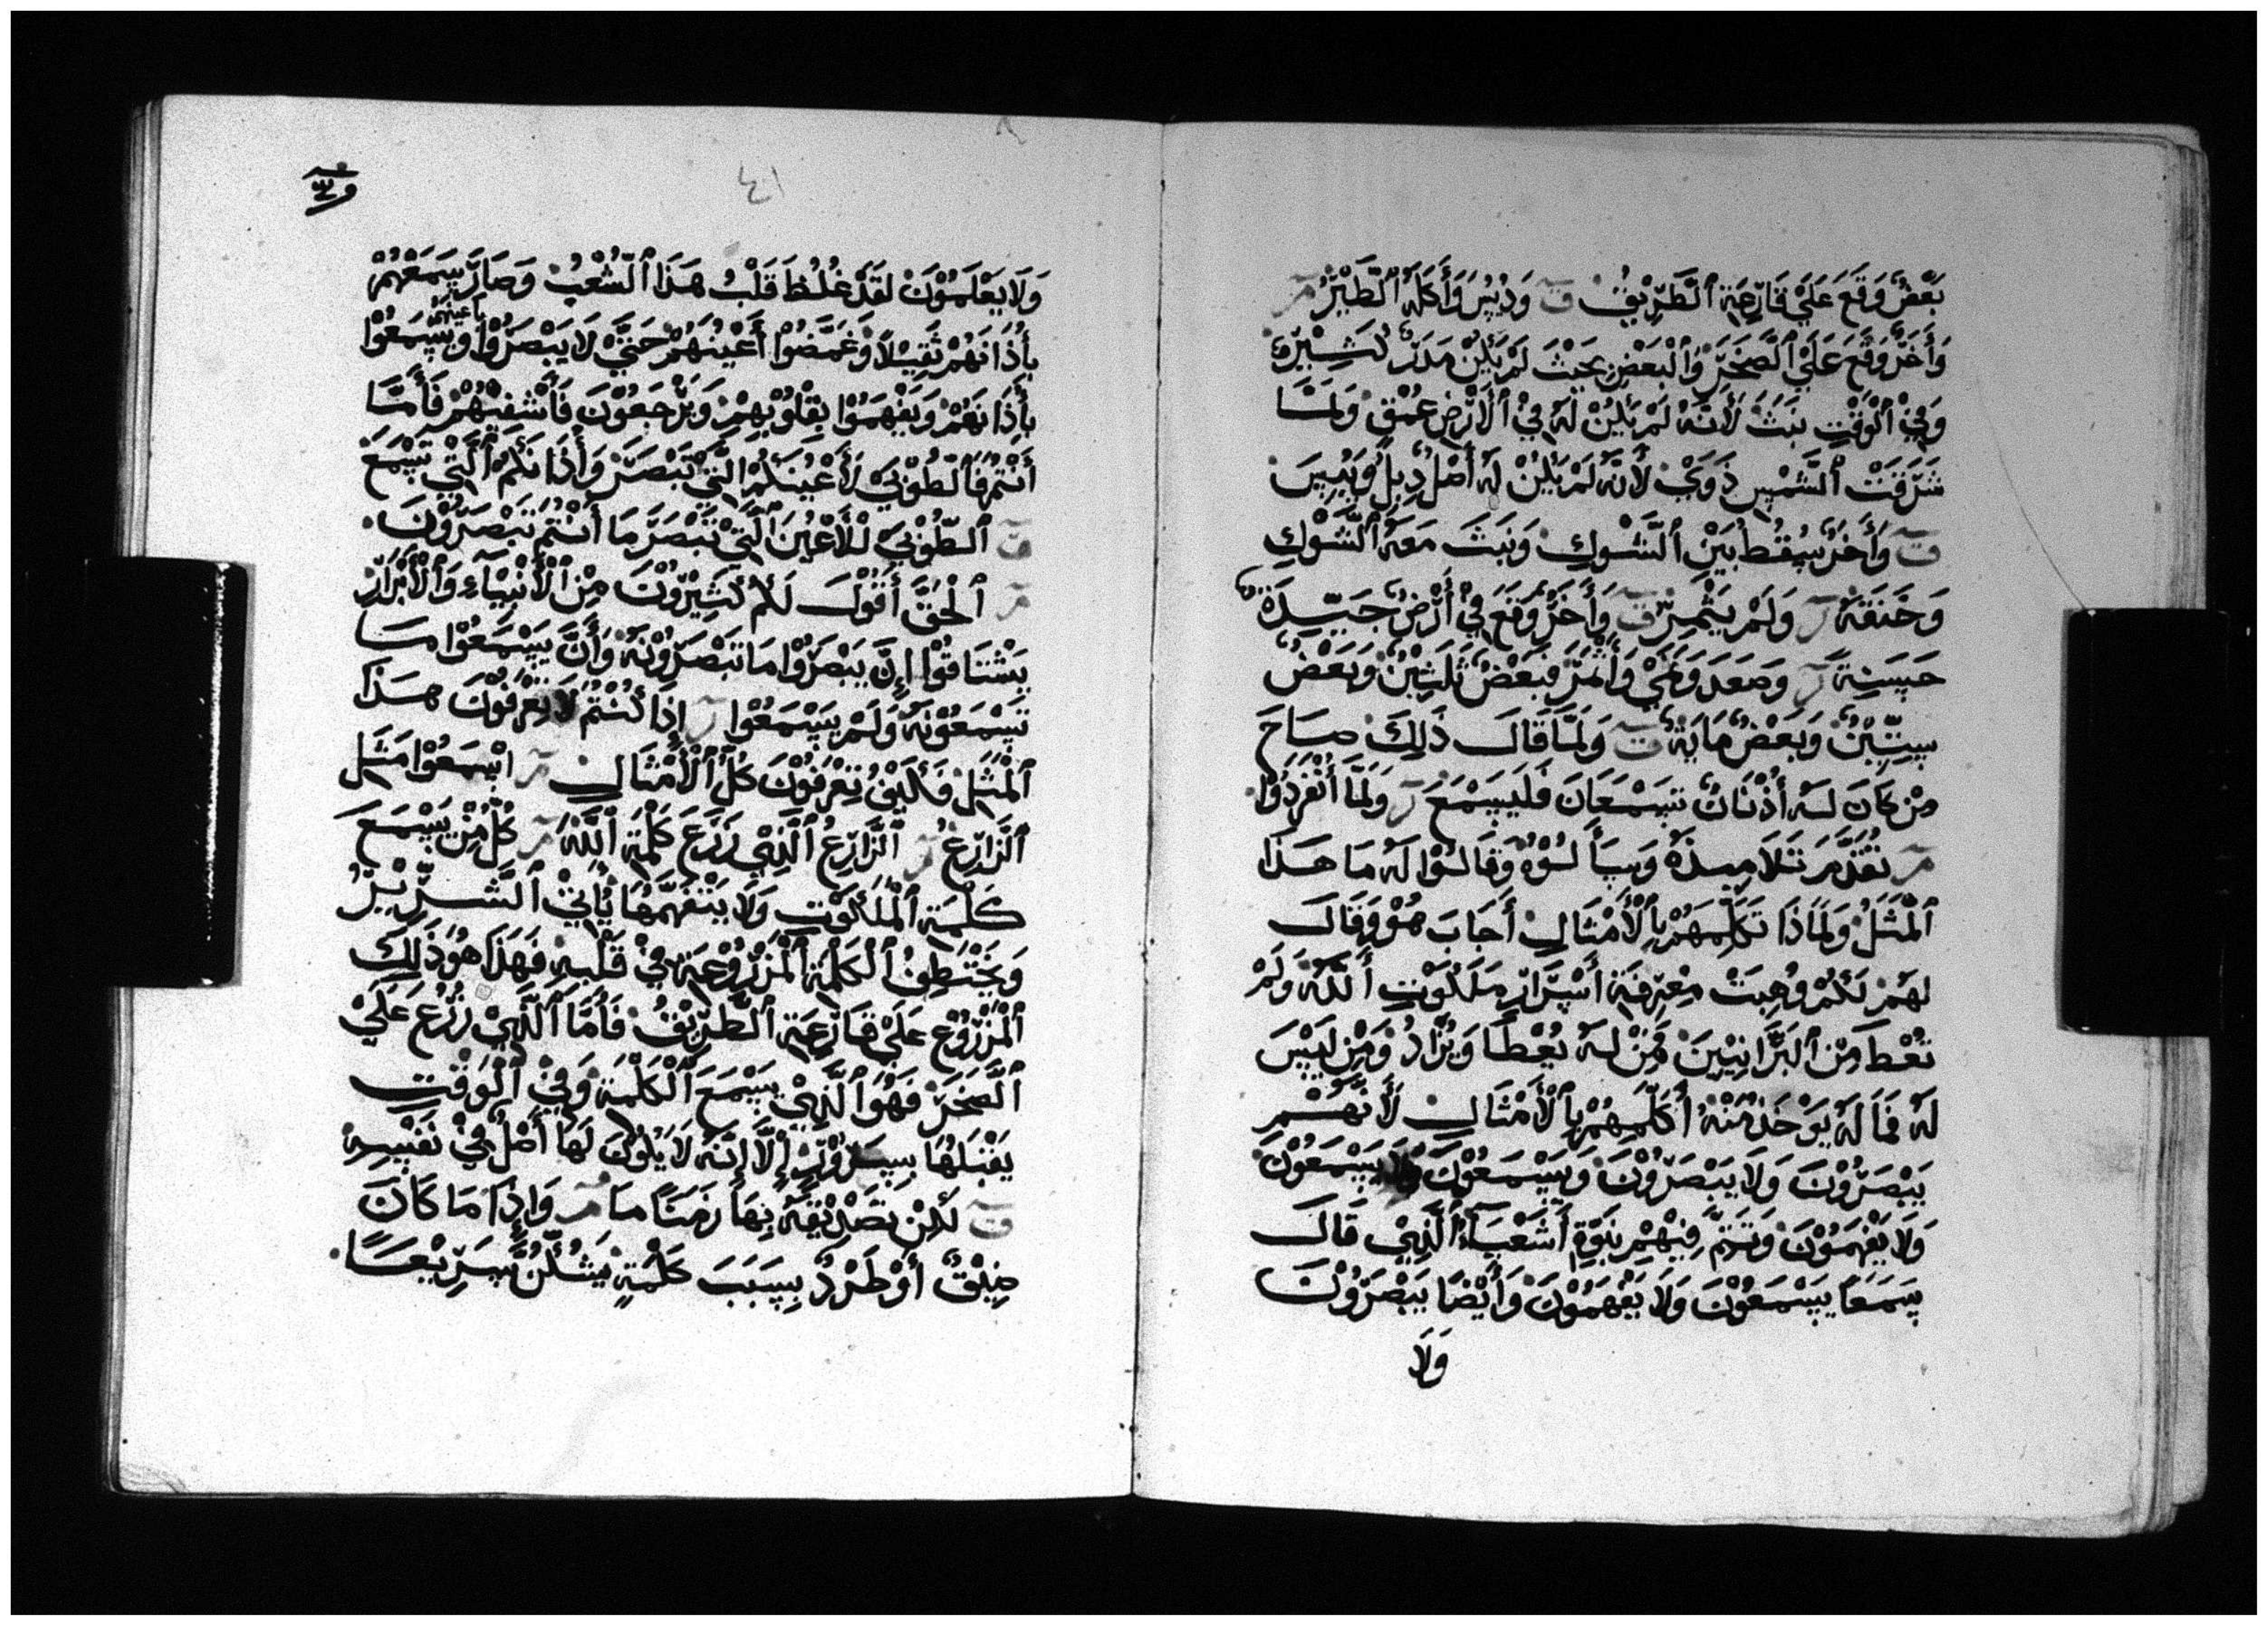 بَعْضٌ وَقَعَ عَلَيْ قَارِعَةِ ٱلْطَرِيْقْ وَدُيِسَ وَأَكَلَهُ ٱلْطَيْرُ
وَأَخَرٌ وَقَعَ عَلَيْ ٱلْصَخَرَ وَٱلْبَعْضِ بِحَيْثَ لَمْ يَكُنْ مَدَرٌ كَثِيْرٌ
وَفِيْ ٱلْوَقْتِ نَبَثَ لَأَنَهُ لَمْ يَكُنْ لَهُ فِيْ ٱلْأَرْضِ عُمْقٍ وَلَمَّا
شَرَقَتْ ٱلْشَمْسِ ذَوَيْ لأَنَهُ لَمْ يَكُنْ لَهُ أَصْلٌ بِلْ وَيَبِسَ
وَأَخَرٌ سَقُطَ بَيْنَ ٱلْشَوْكِ وَنَبَثَ مَعَهُ ٱلْشَوْكِ
وَخَنَقَهُ وَلَمْ يَثْمِرْ وَأَخَرٌ وَقَعَ فِيْ أَرْضٍ جَيّدَةٍ
حَسَنِةً وَصَعَدَ وَنَمَيْ وَاثْمَرَ فَبَعْضٌ ثَلَثِيْنٌ وَبَعْضٌ
سِتّيْنٌ وَبَعْضٌ مَايَةٌ وَلَمَّا قَالَ ذَلِكَ صَاحَ
مِنْ كَانَ لَهُ أُذْنَانٌ تَسْمَعَانَ فَلَيَسْمَعَ وَلَمَّا أنْفَرَدُوْا
تَقُدَّمَ تَلَامِيذَهُ وَسَأَلُوْهُ وَقَالُوْا لَهُ مَا هَذَا
ٱلْمَثَلْ وَلِمَاذَا تَكَلِّمَهُمْ بِٱلْأَمْثَالِ أَجَابَ هُوْ وَقَالَ
لِهَمْ لَكُمْ وُهِبَتْ مِعْرِفَةِ أَسْرَارَ مَلَكُوْتِ أَللَّهُ وَلَمْ
تُعْطَ مِنْ ٱلْبَرَّانِيْيِنَ فَمَنْ لَهُ يُعْطَا وَيُزَادُ وَمِنْ لَيْسَ
لَهُ فَمَا لَهُ يَوْخَذْ مَنْهُ أكَلِّمِهُمْ بِٱلْأَمْثَالِ لَأَنَهُمْ
يَبْصَرُوْنَ وَلَا يَبْصَرُوْنَ وَيَسْمَعُوْنَ وَلَا يَسْمَعُوْنَ
وَلَا يَفْهَمُوْنَ وَتَتِمَّ فِيْهِمْ نِبَوَةِ أَشَعْيَآءُ ٱلَّذِيْ قَالَ
سَمَعَاً يَسْمَعُوْنَ وَلَا يَفْهَمُوْنَ وَأَيْضَاً يَبْصَرُوْنَ
وَلَا
٤١
وَلَا يَعْلَمُوْنَ لَقَدْ غُلُظَ قَلْبُ هَذَا ٱلْشُعْبْ وَصَارَ سَمَعْهُمْ
بأُذَانَهُمْ ثَقِيْلاً وَغَمَّضُوْا أَعْيُنُهُمْ حَتَّيْ لَا يَبْصَرُوْا بأعينهم وَيسَمَعُوْا
بأُذَانَهُمْ وَيَفْهَمُوْا بِقْلُوْبِهِمْ وَيَرْجَعُوْنَ فَأَشْفِيْهُمْ فَأَمَّا
أَنْتُمْ فَٱلطُوْبَيْ لَأَعْيُنَكُمْ الَّتِيْ تَبْصَرَ وَأُذَانَكُمْ ٱلَّتِيْ تَسْمَعْ
ٱلطُوْبَيْ لْلأَعْيُنَ ٱلَّتِيْ تَبْصَرَ مَا أَنْتُمْ تَبْصَرُوْنَ
ٱلْحُقَّ أَقُوْلَ لَكُمْ كَثِيْرُوْنَ مِنْ ٱلْأَنْبِيَآءِ وَٱلْأَبْرَارْ
يَشْتَاقُوْا إِنَّ يَبْصَرُوْا مَا تَبْصَرُوْنَهُ وَأَنَّ يَسْمَعُوْا مَا
تَسْمَعُوْنَهُ وَلَمْ يَسْمَعُوْا إِذَا كُنْتُمْ لَا تَعْرِفُوْنَ هَذَا
ٱلْمَثَلْ فَكَيْفَ تِعْرَفُوْنَ كُلَّ ٱلْأَمْثَالِ اسْمَعُوْا مَثَلِ
ٱلْزَارِعْ ٱلْزَارِعُ ٱلَّذِيْ زَرَعَ كَلْمَةِ ٱللَّهْ كُلُّ مِنْ يَسْمَعَ
كَلْمَةِ ٱلْمَلَكُوْتِ وَلَا يَتْفَهَمَهَا يَأتِيْ ٱلْشَرِّيْرُ
وَيَخْتَطِفُ ٱلْكَلْمَةِ ٱلْمَزْرُوْعَةِ فِيْ قَلْبِهِ فَهَذَا هُوَ ذَلِكَ
ٱلْمَزْرُوْعِ عَلَيْ قَارِعَةِ ٱلْطَرِيْقْ فَأَمَّا ٱلَّذِيْ زُرُعَ عَلَيْ
ٱلْصَخَرَ فَهُوَ ٱلَّذِيْ يَسْمَعَ ٱلْكَلْمَةِ وَفِيْ ٱلْوَقْتِ
يَقْبَلَهَا بِسَرُوْرٍ إِلَّا إِنَهُ لَا يَكُوْنَ لَهَا أَصْلٌ فِيْ نَفْسِهِ
لَكِنْ تَصْدِيْقَهُ بِهَا زَمَنَاً مَا وَاِذَا مَا كَانَ
ضِيْقٌ أَوْ طَرْدٌ بِسَبَبَ كَلْمَةٍ يَشُكُّنَّ سَرِيْعَاً